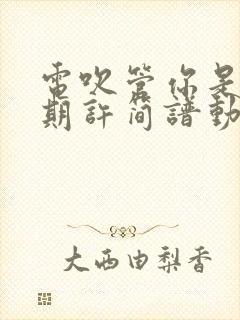 電吹管你是
期許簡譜動
大西由梨香